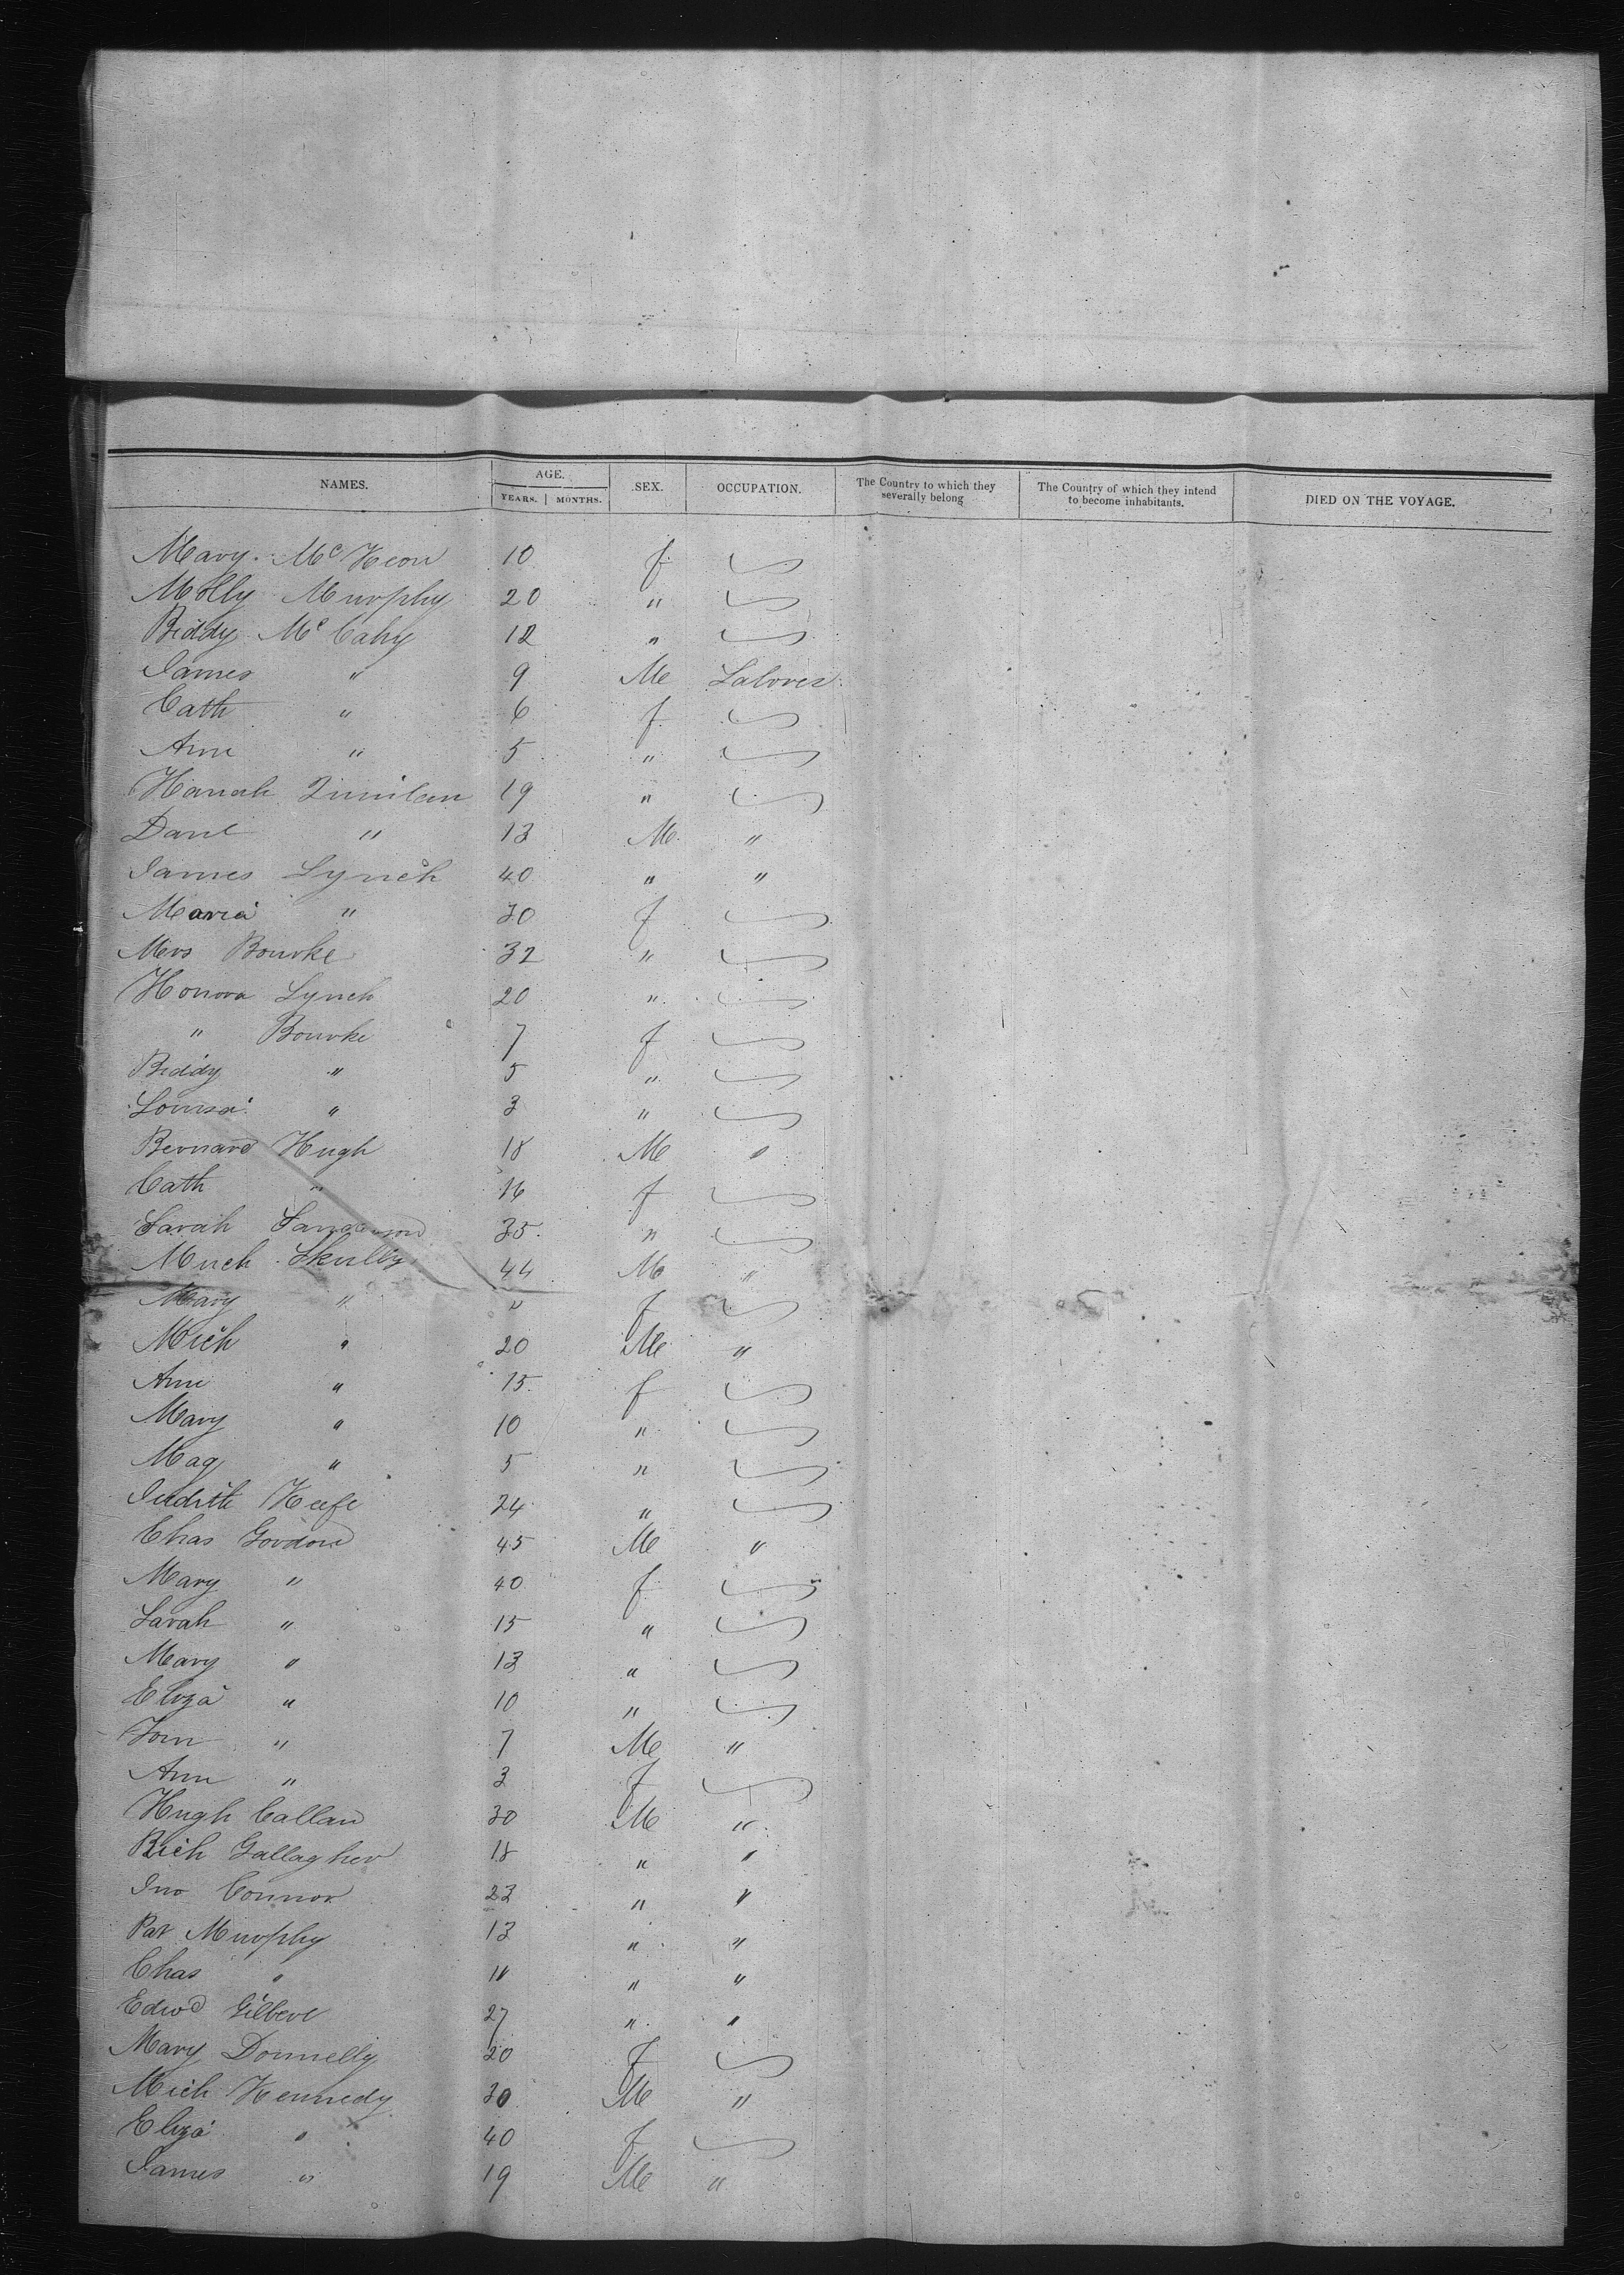 NAMES. AGE. YEARS. MONTHS. SEX. OCCUPATION. The Country to which they severally belong The Country of which they intend to become inhabitants. DIED ON THE VOYAGE.
Mary McKeon 10 f
Molly Murphy 20 "
Biddy Mc Cahy 12 "
James " 9 M Laborer
Cath " 6 f
Ann " 5 "
Hanah Quinlan 19 "
Danl " 13 M "
James Lynch 40 " "
Maria " 30 f
Mrs Bourke 32 "
Honora Lynch 20 "
" Bourke 7 f
Biddy " 5 "
Louisa " 3 "
Bernard Hugh 18 M "
Cath " 16 f
Sarah Sanderson 35 "
Mich Skully 44 M "
Mary " " f
Mich " 20 M "
Ann " 15 f
Mary " 10 "
Mag " 5 "
Judith Keefe 24 "
Chas Gordon 45 M "
Mary " 40 f
Sarah " 15 "
Mary " 13 "
Eliza " 10 "
Tom " 7 M "
Ann " 3 f
Hugh Callan 30 M "
Rich Gallagher 18 " "
Jno Connor 23 " "
Pat Murphy 13 " "
Chas " 11 " "
Edwd Gilbert 27 " "
Mary Donnelly 20 f
Mich Kennedy 30 M "
Eliza " 40 f
James " 19 M "